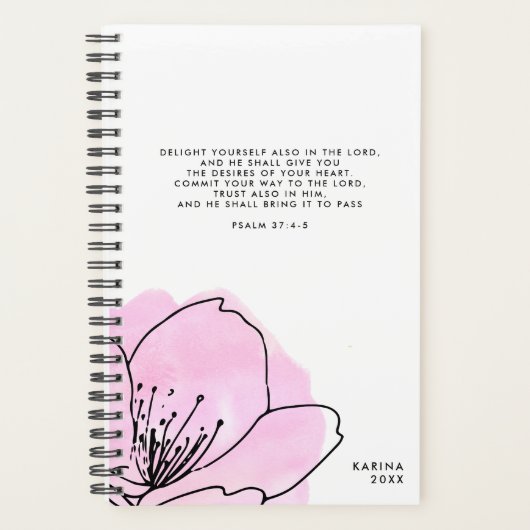 DELIGHT YOURSELF ALSO IN THE LORD,
AND HE SHALL GIVE YOU
THE DESIRES OF YOUR HEART.
COMMIT YOUR WAY TO THE LORD,
TRUST ALSO IN HIM,
AND HE SHALL BRING IT TO PASS
PSALM 37:4-5
KARINA
20XX